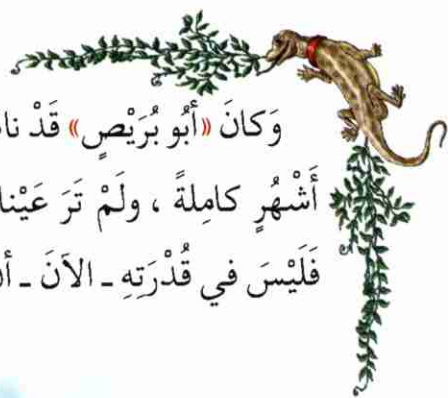 وَكانَ «أَبُو بُرَيْصٍ» قَدْ
أَشْهُرٍ كامِلةً ، ولَمْ تَرَ
فَلَيْسَ في قُدْرَتِهِ ـ الآنَ ـ